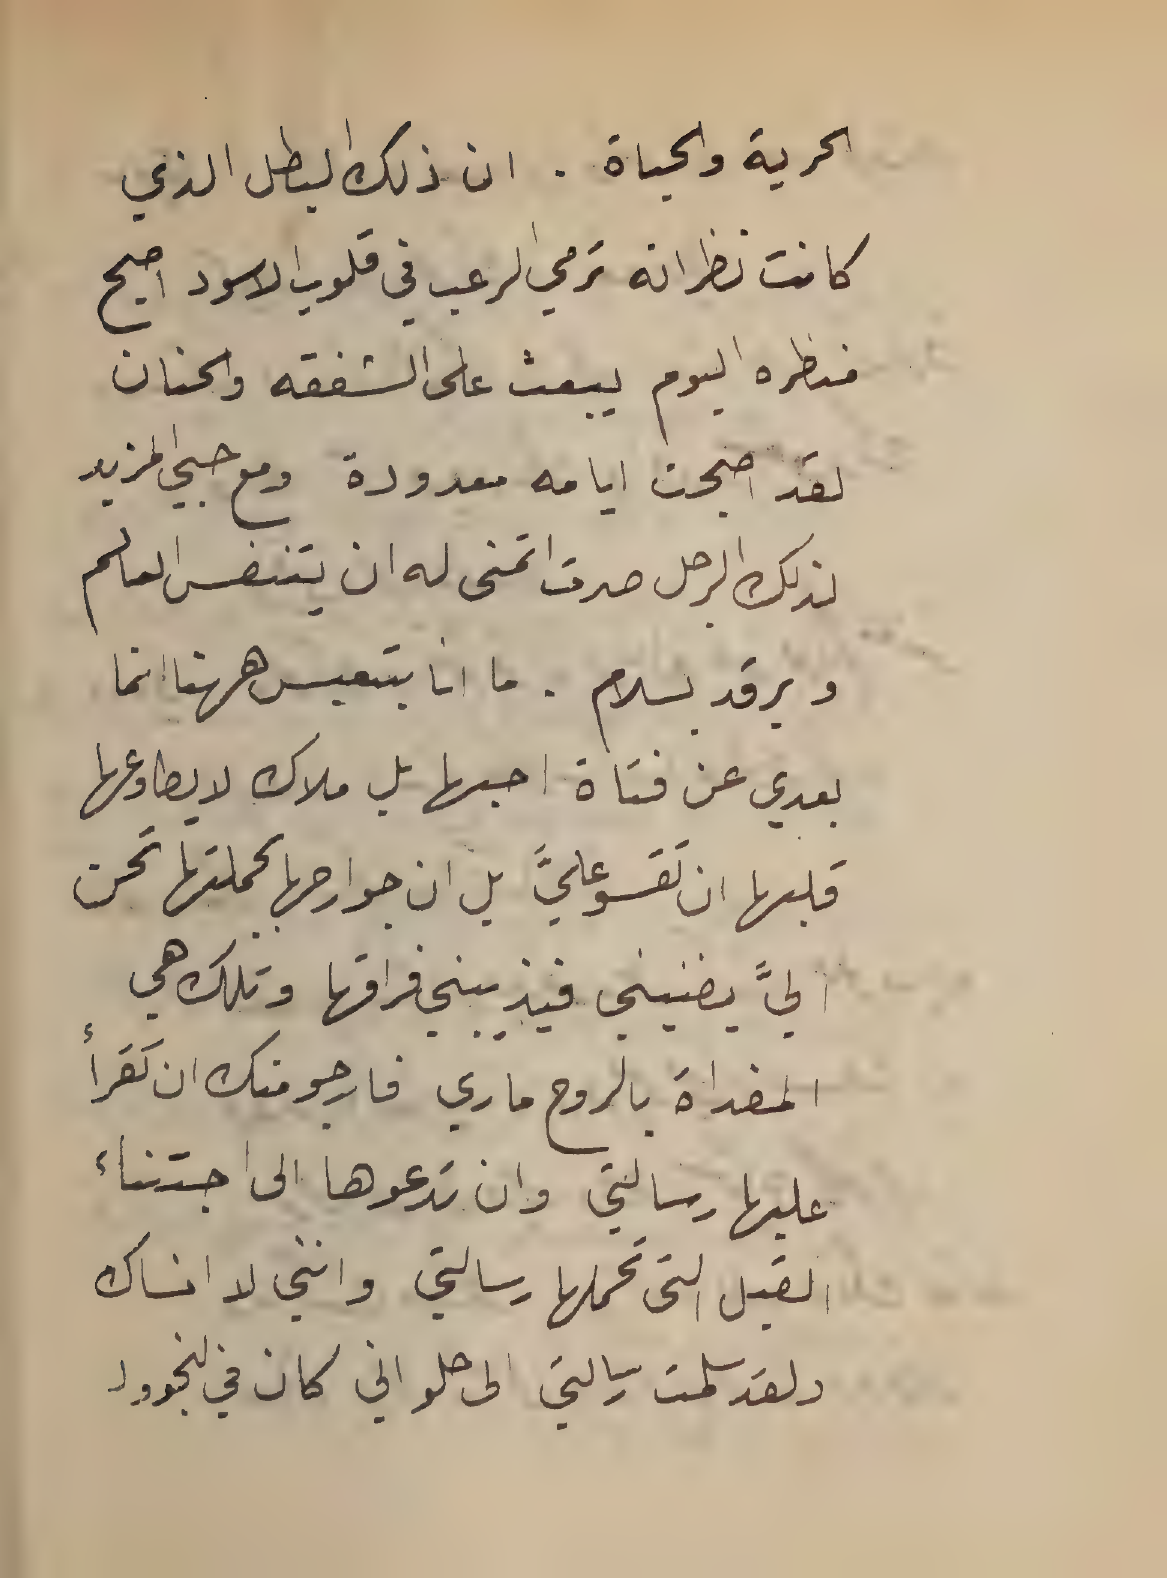 الحرية والحياة . ان ذلك البطل الذي
كانت نظراته ترمي الرعب في قلوب الاسود اصبح
منظره اليوم يبعث على الشفقه والحنان
لقد اصبحت ايامه معدودة ومع حبي المزيد
لذلك الرجل صرت اتمنى له ان يتنفس العالم
ويرقد بسلام . ما انا بتعيس ههنا انما
بعدي عن فتاة احبها بل ملاك لا يطاوعها
قلبها ان تقسو عليَّ بل ان جوارحها بجملتها تحن
اليَّ يضنيني فيذيبني فراقها وتلك هي
المفداة بالروح ماري فارجو منك ان تقرأ
عليها رسالتي وان تدعوها الى اجتناء
القبل التي تحملها رسالتي وانني لا انساك
ولقد سلمت رسالتي الى حلواني كان في